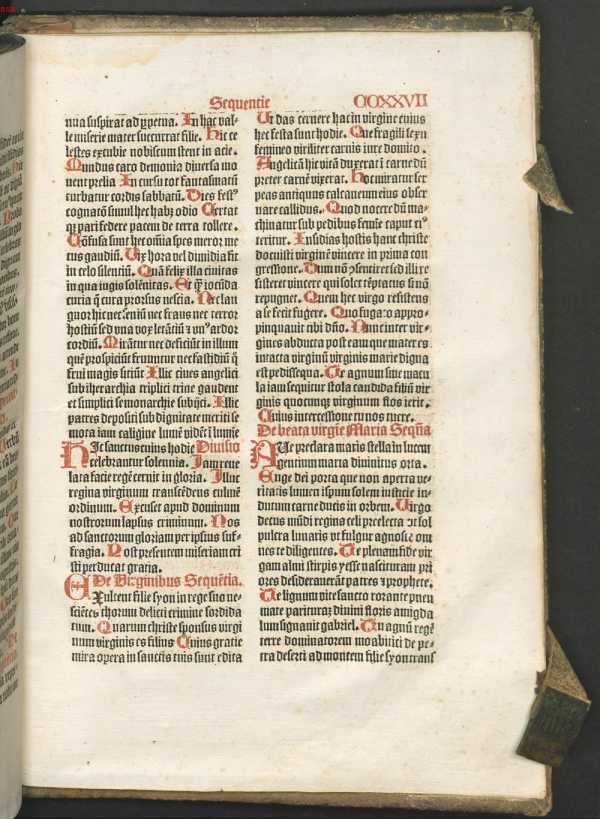 Sequentie CCXXVII
nua suspirat ad yperna. In hac val-
le miserie mater succurrat filie. Hic ce
lestes excubie nobiscum stent in acie.
Mundus caro demonia diversa mo
uent prelia In cursu tot fantasmatū
turbatur cordis sabbatū. Dies festꝰ
cognatō simul hec habꝫ odio Certat
qꝫ pari federe pacem de terra tollere.
Cōfusa sunt hec oīnia spes meror me
tus gaudiū. Vix hora vel dimidia fit
in celo silentiū. Quā felix illa ciuitas
in qua iugis solēnitas. Et qꝫ iocūda
curia q̄ cura prorsus nescia. Nec lan
guor hic nec seniū nec fraus nec terror
hostiū sed vna vox letātiū ⁊ vnꝰ ardor
cordiū. Illic ciues angelici
sub iherarchia triplici trine gaudent
et simplici se monarchie subijci. Illic
patres depositi sub dignitate meriti se
mota iam caligine lumē vidēt ī lumīe
Hic sanctus cuius hodie Diuisio
celebrantur solennia. Iam reue
lata facie regē cernit in gloria. Illuc
regina virginum transcēdens culmē
ordinum. Excuset apud dominum
nostrorum lapsus criminum. Nos
ad sanctorum gloriam per ipsius suf-
fragia. Post presentem miseriam cri
sti perducat gratia.
De Virginibus Sequētia.
Exultent filie syon in rege suo ne-
sciētes thorum delicti crimine sordida
tum. Quarum christe sponsus virgi
num virginis es filius Cuius gratie
mira opera in sanctis tuis sunt edita
Vt das cernere hac in virgine cuius
hec festa sunt hodie. Que fragili sexu
femineo viriliter carnis iure domito.
Angelicā hic vitā duxerat ī carne dū
preter carnē vixerat. Hoc miratur ser
peas antiquus calcaneum eius obser
uare callidus. Quod nocere dū ma-
chinatur sub pedibus femīe caput eiꝰ
teritur. Insidias hostis hanc christe
docuisti virginē vincere in prima con
gressione.
sisteret vincere qui solet tēptatus si nō
repugnet. Quem hec virgo resistens
a se fecit fugere. Quo fuga: o appro-
pinquauit tibi dn̄o. Nunc inter vir-
gines abducta post eam que mater es
intacta virginū virginis marie digna
est pedissequa. Te agnum sine macu
la iam sequitur stola candida filiū vir
ginis quocunqꝫ virginum flos ierit.
Cuius intercessione tu nos tuere.
De beata virgīe Maria Seqn̄a
AUe preclara maris stella in lucem
gentium maria diuinitus orta.
Euge dei porta que non aperta ve-
ritatis lumen ipsum solem iusticie in-
dutum carne ducis in orbem. Virgo
decus mūdi regina celi preelecta vt sol
pulcra lunaris vt fulgur agnosce om
nes te diligentes. Te plenam fide vir-
gam almi stirpis yesse nascituram pri
ores desiderauerāt patres ⁊ prophete.
Te lignum vite sancto rorante pneu
mate parituraz diuini floris amigda
lum signauit gabriel. Tu agnū regē
terre dominatorem moabitici de pe-
tra deserti ad montem filie syon trans